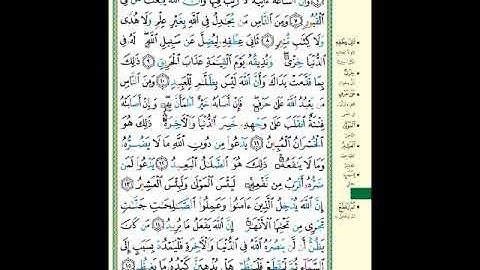 وَأَنَّ ٱلسَّاعَةَ ءَاتِيَةٌ لَّا رَيْبَ فِيهَا وَأَنَّ ٱللَّهَ يَبْعَثُ مَن فِى
ٱلْقُبُورِ ٧ وَمِنَ ٱلنَّاسِ مَن يُجَٰدِلُ فِى ٱللَّهِ بِغَيْرِ عِلْمٍ وَلَا هُدًى
وَلَا كِتَٰبٍ مُّنِيرٍ ٨ ثَانِىَ عِطْفِهِۦ لِيُضِلَّ عَن سَبِيلِ ٱللَّهِ لَهُۥ فِى
ٱلدُّنْيَا خِزْىٌ وَنُذِيقُهُۥ يَوْمَ ٱلْقِيَٰمَةِ عَذَابَ ٱلْحَرِيقِ ٩ ذَٰلِكَ
بِمَا قَدَّمَتْ يَدَاكَ وَأَنَّ ٱللَّهَ لَيْسَ بِظَلَّٰمٍ لِّلْعَبِيدِ ١٠ وَمِنَ ٱلنَّاسِ
مَن يَعْبُدُ ٱللَّهَ عَلَىٰ حَرْفٍ فَإِنْ أَصَابَهُۥ خَيْرٌ ٱطْمَأَنَّ بِهِۦ وَإِنْ أَصَابَتْهُ
فِتْنَةٌ ٱنقَلَبَ عَلَىٰ وَجْهِهِۦ خَسِرَ ٱلدُّنْيَا وَٱلْءَاخِرَةَ ذَٰلِكَ هُوَ
ٱلْخُسْرَانُ ٱلْمُبِينُ ١١ يَدْعُوا۟ مِن دُونِ ٱللَّهِ مَا لَا يَضُرُّهُۥ
وَمَا لَا يَنفَعُهُۥ ذَٰلِكَ هُوَ ٱلضَّلَٰلُ ٱلْبَعِيدُ ١٢ يَدْعُوا۟ لَمَن
ضَرُّهُۥٓ أَقْرَبُ مِن نَّفْعِهِۦ لَبِئْسَ ٱلْمَوْلَىٰ وَلَبِئْسَ ٱلْعَشِيرُ ١٣
إِنَّ ٱللَّهَ يُدْخِلُ ٱلَّذِينَ ءَامَنُوا۟ وَعَمِلُوا۟ ٱلصَّٰلِحَٰتِ جَنَّٰتٍ
تَجْرِى مِن تَحْتِهَا ٱلْأَنْهَٰرُ إِنَّ ٱللَّهَ يَفْعَلُ مَا يُرِيدُ ١٤ مَن كَانَ
يَظُنُّ أَن لَّن يَنصُرَهُ ٱللَّهُ فِى ٱلدُّنْيَا وَٱلْءَاخِرَةِ فَلْيَمْدُدْ بِسَبَبٍ إِلَى
ٱلسَّمَآءِ ثُمَّ لْيَقْطَعْ فَلْيَنظُرْ هَلْ يُذْهِبَنَّ كَيْدُهُۥ مَا يَغِيظُ ١٥